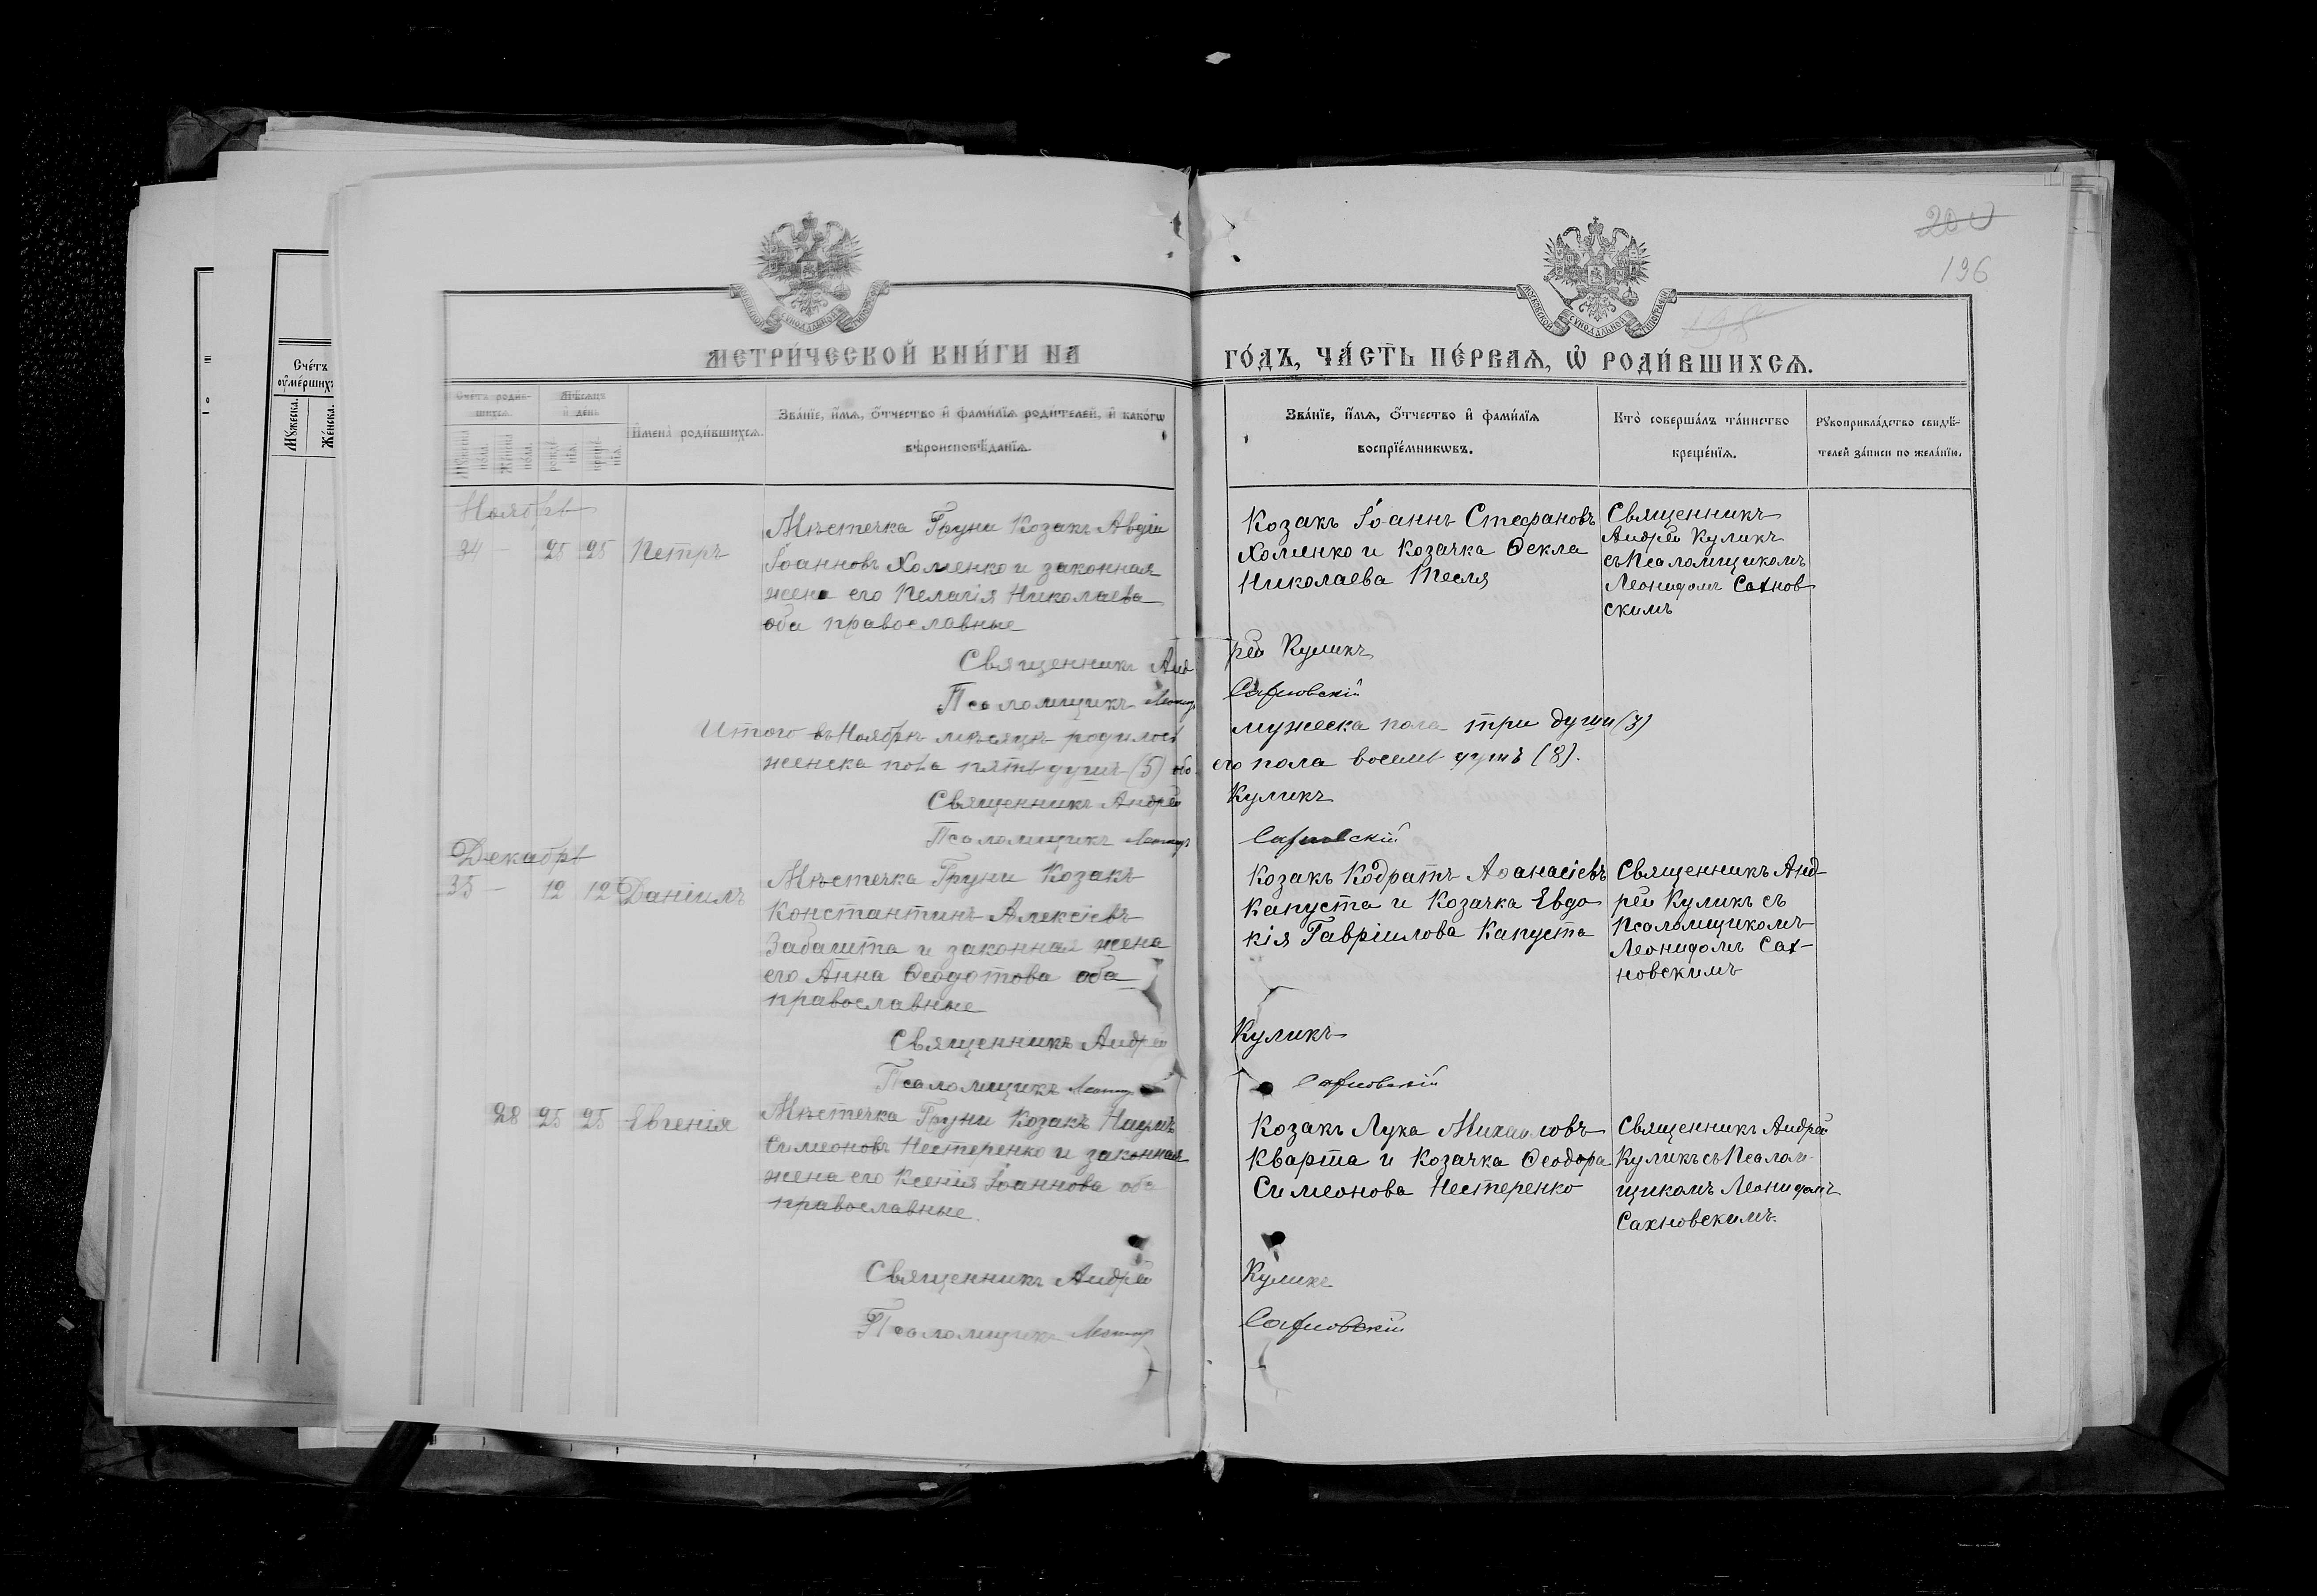 200
196
198
МОСКОВСКОЙ СѴНОДАЛЬНОЙ ТИПОГРАФІИ
МЕТРИ́ЧЕСКОЙ КНИ́ГИ НА ГО́ДЪ, ЧА́СТЬ ПЕ́РВАЯ, Ѡ҆ РОДИ́ВШИХСЯ.
Сче́тъ ѹ҆ме́ршихъ
Мꙋ́жеска.
Же́нска.
Сче́тъ роди́вшихсѧ.
Мꙋ́жеска по́ла
Же́нска по́ла
Мѣ́сѧцъ и҆ день
рожде́нїѧ.
креще́нїѧ.
И҆мена̀ роди́вшихсѧ.
Зва́нїе, и҆́мѧ, ѻ҆́тчество и҆ фами́лїѧ роди́телей, и҆ како́гѡ вѣроисповѣ́данїѧ.
Зва́нїе, и҆́мѧ, ѻ҆́тчество и҆ фами́лїѧ воспрїе́мникѡвъ.
Кто̀ соверша́лъ та́инство креще́нїѧ.
Рꙋкоприкла́дство свидѣ́телей за́писи по жела́нїю.
Ноябрь
34 – 25 25 Петръ
Мѣстечка Груни Козакъ Авдіи
Іоанновъ Хоменко и законная
жена его Пелагія Николаева
оба православные
Козакъ Іоаннъ Стефановъ
Хоменко и Козачка Ѳекла
Николаева Тесля
Священникъ
Андрей Куликъ
съ Псаломщикомъ
Леонидомъ Сахнов
скимъ
Священникъ Андрей Куликъ
Псаломщикъ Леонид Сахновскій
Итого въ Ноябрѣ мѣсяцѣ родилось мужеска пола три души (3)
женска пола пять душъ (5) обоего пола восемь душъ (8).
Священникъ Андрей Куликъ
Псаломщикъ Леонид Сахновскій
Декабрь
35 – 12 12 Даніилъ
Мѣстечка Груни Козакъ
Константинъ Алексіевъ
Забашта и законная жена
его Анна Ѳеодотова оба
православные
Козакъ Кодратъ Аѳанасіевъ
Капуста и Козачка Евдо
кія Гавріилова Капуста
Священникъ Анд-
рей Куликъ съ
Псаломщикомъ
Леонидомъ Сах-
новскимъ
Священникъ Андрей Куликъ
Псаломщикъ Леонид Сахновскій
28 25 25 Евгенія
Мѣстечка Груни Козакъ Наумъ
Симеоновъ Нестеренко и законная
жена его Ксенія Іоаннова оба
православные.
Козакъ Лука Михаиловъ
Кварта и Козачка Ѳеодора
Симеонова Нестеренко
Священникъ Андрей
Куликъ съ Псалом
щикомъ Леонидомъ
Сахновскимъ.
Священникъ Андрей Куликъ
Псаломщикъ Леонид Сахновскій